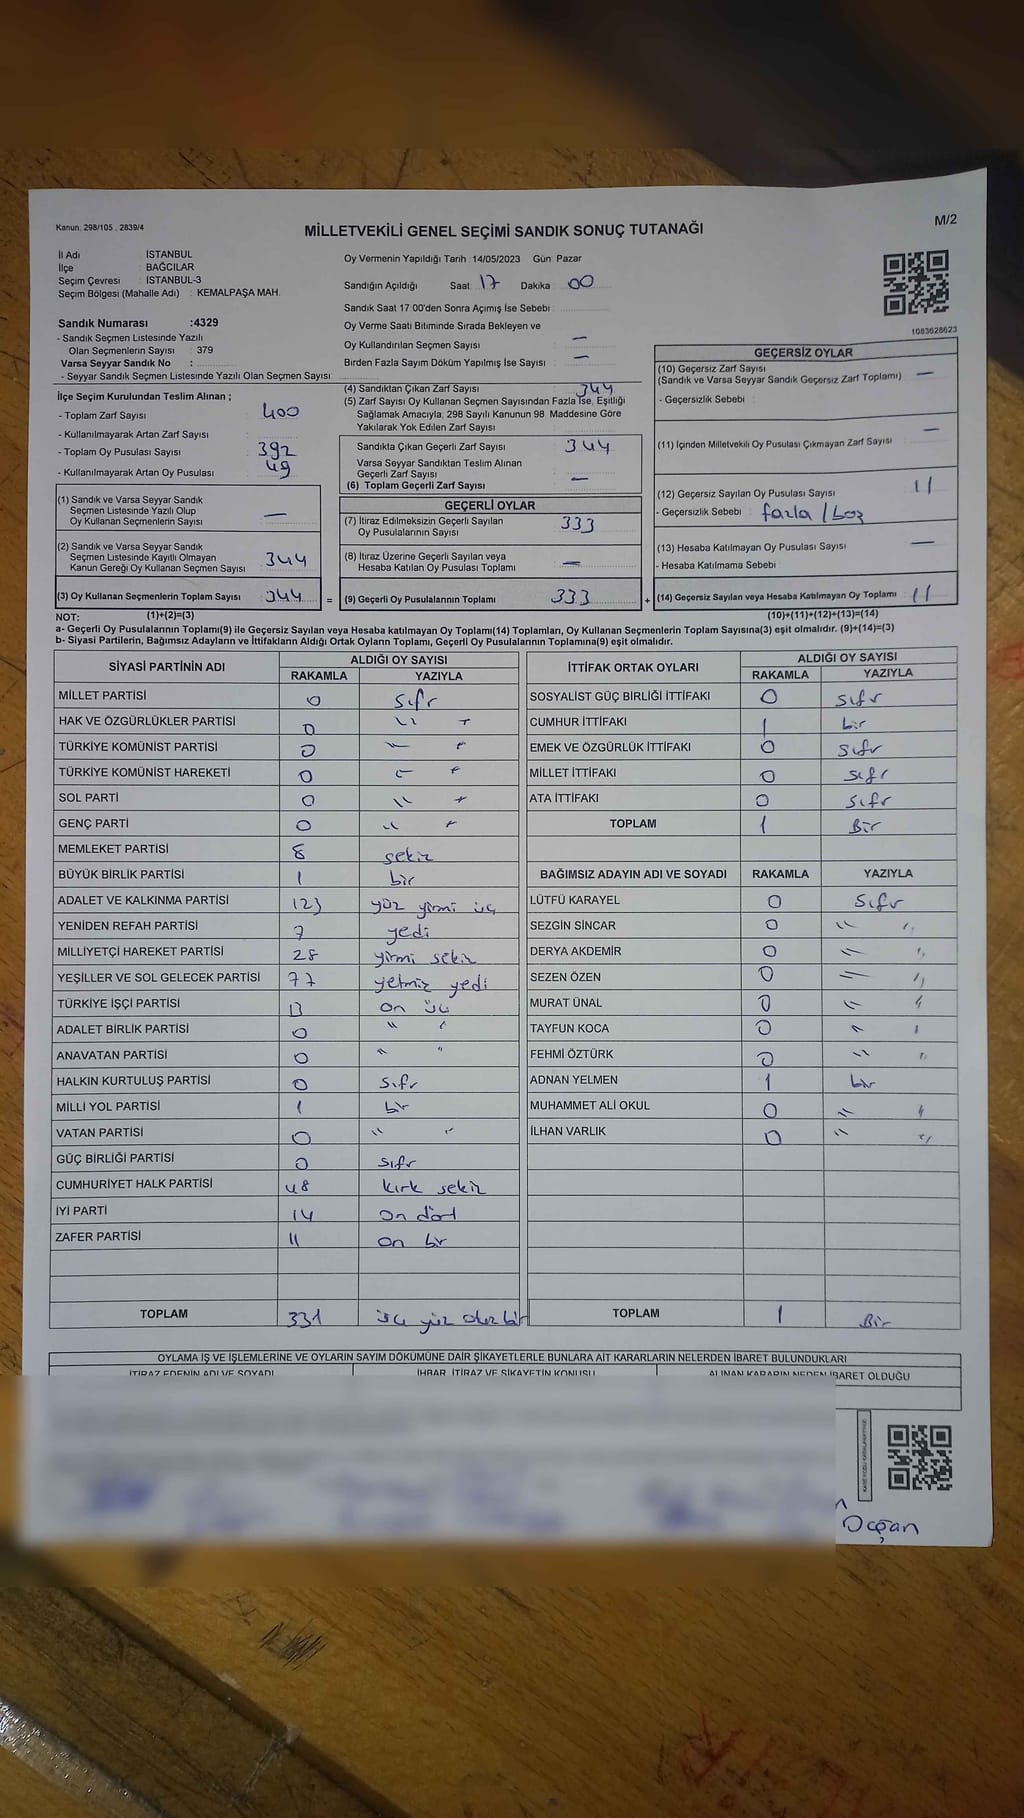 Kanun; 298/105 , 2839/4
MİLLETVEKİLİ GENEL SEÇİMİ SANDIK SONUÇ TUTANAĞI
M/2
İl Adı : İSTANBUL
İlçe : BAĞCILAR
Seçim Çevresi : İSTANBUL-3
Seçim Bölgesi (Mahalle Adı) : KEMALPAŞA MAH.
Sandık Numarası :4329
- Sandık Seçmen Listesinde Yazılı
Olan Seçmenlerin Sayısı : 379
Varsa Seyyar Sandık No :
- Seyyar Sandık Seçmen Listesinde Yazılı Olan Seçmen Sayısı:
Oy Vermenin Yapıldığı Tarih :14/05/2023 Gün: Pazar
Sandığın Açıldığı Saat: 17 Dakika : 00
Sandık Saat 17.00'den Sonra Açımış İse Sebebi :
Oy Verme Saati Bitiminde Sırada Bekleyen ve
Oy Kullandırılan Seçmen Sayısı : —
Birden Fazla Sayım Döküm Yapılmış İse Sayısı : —
1083628623
İlçe Seçim Kurulundan Teslim Alınan ;
- Toplam Zarf Sayısı : 400
- Kullanılmayarak Artan Zarf Sayısı :
- Toplam Oy Pusulası Sayısı : 392
- Kullanılmayarak Artan Oy Pusulası : 49
(1) Sandık ve Varsa Seyyar Sandık
Seçmen Listesinde Yazılı Olup
Oy Kullanan Seçmenlerin Sayısı : —
(2) Sandık ve Varsa Seyyar Sandık
Seçmen Listesinde Kayıtlı Olmayan
Kanun Gereği Oy Kullanan Seçmen Sayısı : 344
(3) Oy Kullanan Seçmenlerin Toplam Sayısı : 344 =
(4) Sandıktan Çıkan Zarf Sayısı : 344
(5) Zarf Sayısı Oy Kullanan Seçmen Sayısından Fazla İse, Eşitliği
Sağlamak Amacıyla; 298 Sayılı Kanunun 98. Maddesine Göre
Yakılarak Yok Edilen Zarf Sayısı :
Sandıkta Çıkan Geçerli Zarf Sayısı : 344
Varsa Seyyar Sandıktan Teslim Alınan
Geçerli Zarf Sayısı :
(6) Toplam Geçerli Zarf Sayısı : —
GEÇERLİ OYLAR
(7) İtiraz Edilmeksizin Geçerli Sayılan
Oy Pusulalarının Sayısı : 333
(8) İtiraz Üzerine Geçerli Sayılan veya
Hesaba Katılan Oy Pusulası Toplamı : —
(9) Geçerli Oy Pusulalarının Toplamı : 333 +
GEÇERSİZ OYLAR
(10) Geçersiz Zarf Sayısı
(Sandık ve Varsa Seyyar Sandık Geçersiz Zarf Toplamı) : —
- Geçersizlik Sebebi :
(11) İçinden Milletvekili Oy Pusulası Çıkmayan Zarf Sayısı : —
(12) Geçersiz Sayılan Oy Pusulası Sayısı : 11
- Geçersizlik Sebebi : fazla / boz
(13) Hesaba Katılmayan Oy Pusulası Sayısı : —
- Hesaba Katılmama Sebebi :
(14) Geçersiz Sayılan veya Hesaba Katılmayan Oy Toplamı : 11
NOT: (1)+(2)=(3) (10)+(11)+(12)+(13)=(14)
a- Geçerli Oy Pusulalarının Toplamı(9) ile Geçersiz Sayılan veya Hesaba katılmayan Oy Toplamı(14) Toplamları, Oy Kullanan Seçmenlerin Toplam Sayısına(3) eşit olmalıdır. (9)+(14)=(3)
b- Siyasi Partilerin, Bağımsız Adayların ve İttifakların Aldığı Ortak Oyların Toplamı, Geçerli Oy Pusulalarının Toplamına(9) eşit olmalıdır.
SİYASİ PARTİNİN ADI ALDIĞI OY SAYISI
RAKAMLA YAZIYLA
MİLLET PARTİSİ 0 sıfr
HAK VE ÖZGÜRLÜKLER PARTİSİ 0 " "
TÜRKİYE KOMÜNİST PARTİSİ 0 " "
TÜRKİYE KOMÜNİST HAREKETİ 0 " "
SOL PARTİ 0 " "
GENÇ PARTİ 0 " "
MEMLEKET PARTİSİ 8 sekiz
BÜYÜK BİRLİK PARTİSİ 1 bir
ADALET VE KALKINMA PARTİSİ 123 yüz yirmi üç
YENİDEN REFAH PARTİSİ 7 yedi
MİLLİYETÇİ HAREKET PARTİSİ 28 yirmi sekiz
YEŞİLLER VE SOL GELECEK PARTİSİ 77 yetmiz yedi
TÜRKİYE İŞÇİ PARTİSİ 13 on üç
ADALET BİRLİK PARTİSİ 0 " "
ANAVATAN PARTİSİ 0 " "
HALKIN KURTULUŞ PARTİSİ 0 sıfr
MİLLİ YOL PARTİSİ 1 bir
VATAN PARTİSİ 0 " "
GÜÇ BİRLİĞİ PARTİSİ 0 sıfr
CUMHURİYET HALK PARTİSİ 48 kırk sekiz
İYİ PARTİ 14 on dört
ZAFER PARTİSİ 11 on bir
TOPLAM 331 üç yüz otuz bir
İTTİFAK ORTAK OYLARI ALDIĞI OY SAYISI
RAKAMLA YAZIYLA
SOSYALİST GÜÇ BİRLİĞİ İTTİFAKI 0 sıfr
CUMHUR İTTİFAKI 1 bir
EMEK VE ÖZGÜRLÜK İTTİFAKI 0 sıfr
MİLLET İTTİFAKI 0 sıfr
ATA İTTİFAKI 0 sıfr
TOPLAM 1 Bir
BAĞIMSIZ ADAYIN ADI VE SOYADI RAKAMLA YAZIYLA
LÜTFÜ KARAYEL 0 sıfr
SEZGİN SİNCAR 0 " "
DERYA AKDEMİR 0 " "
SEZEN ÖZEN 0 " "
MURAT ÜNAL 0 " "
TAYFUN KOCA 0 " "
FEHMİ ÖZTÜRK 0 " "
ADNAN YELMEN 1 bir
MUHAMMET ALİ OKUL 0 " "
İLHAN VARLIK 0 " "
TOPLAM 1 Bir
OYLAMA İŞ VE İŞLEMLERİNE VE OYLARIN SAYIM DÖKÜMÜNE DAİR ŞİKAYETLERLE BUNLARA AİT KARARLARIN NELERDEN İBARET BULUNDUKLARI
İTİRAZ EDENİN ADI VE SOYADI İHBAR, İTİRAZ VE ŞİKAYETİN KONUSU ALINAN KARARIN NEDEN İBARET OLDUĞU
Doğan